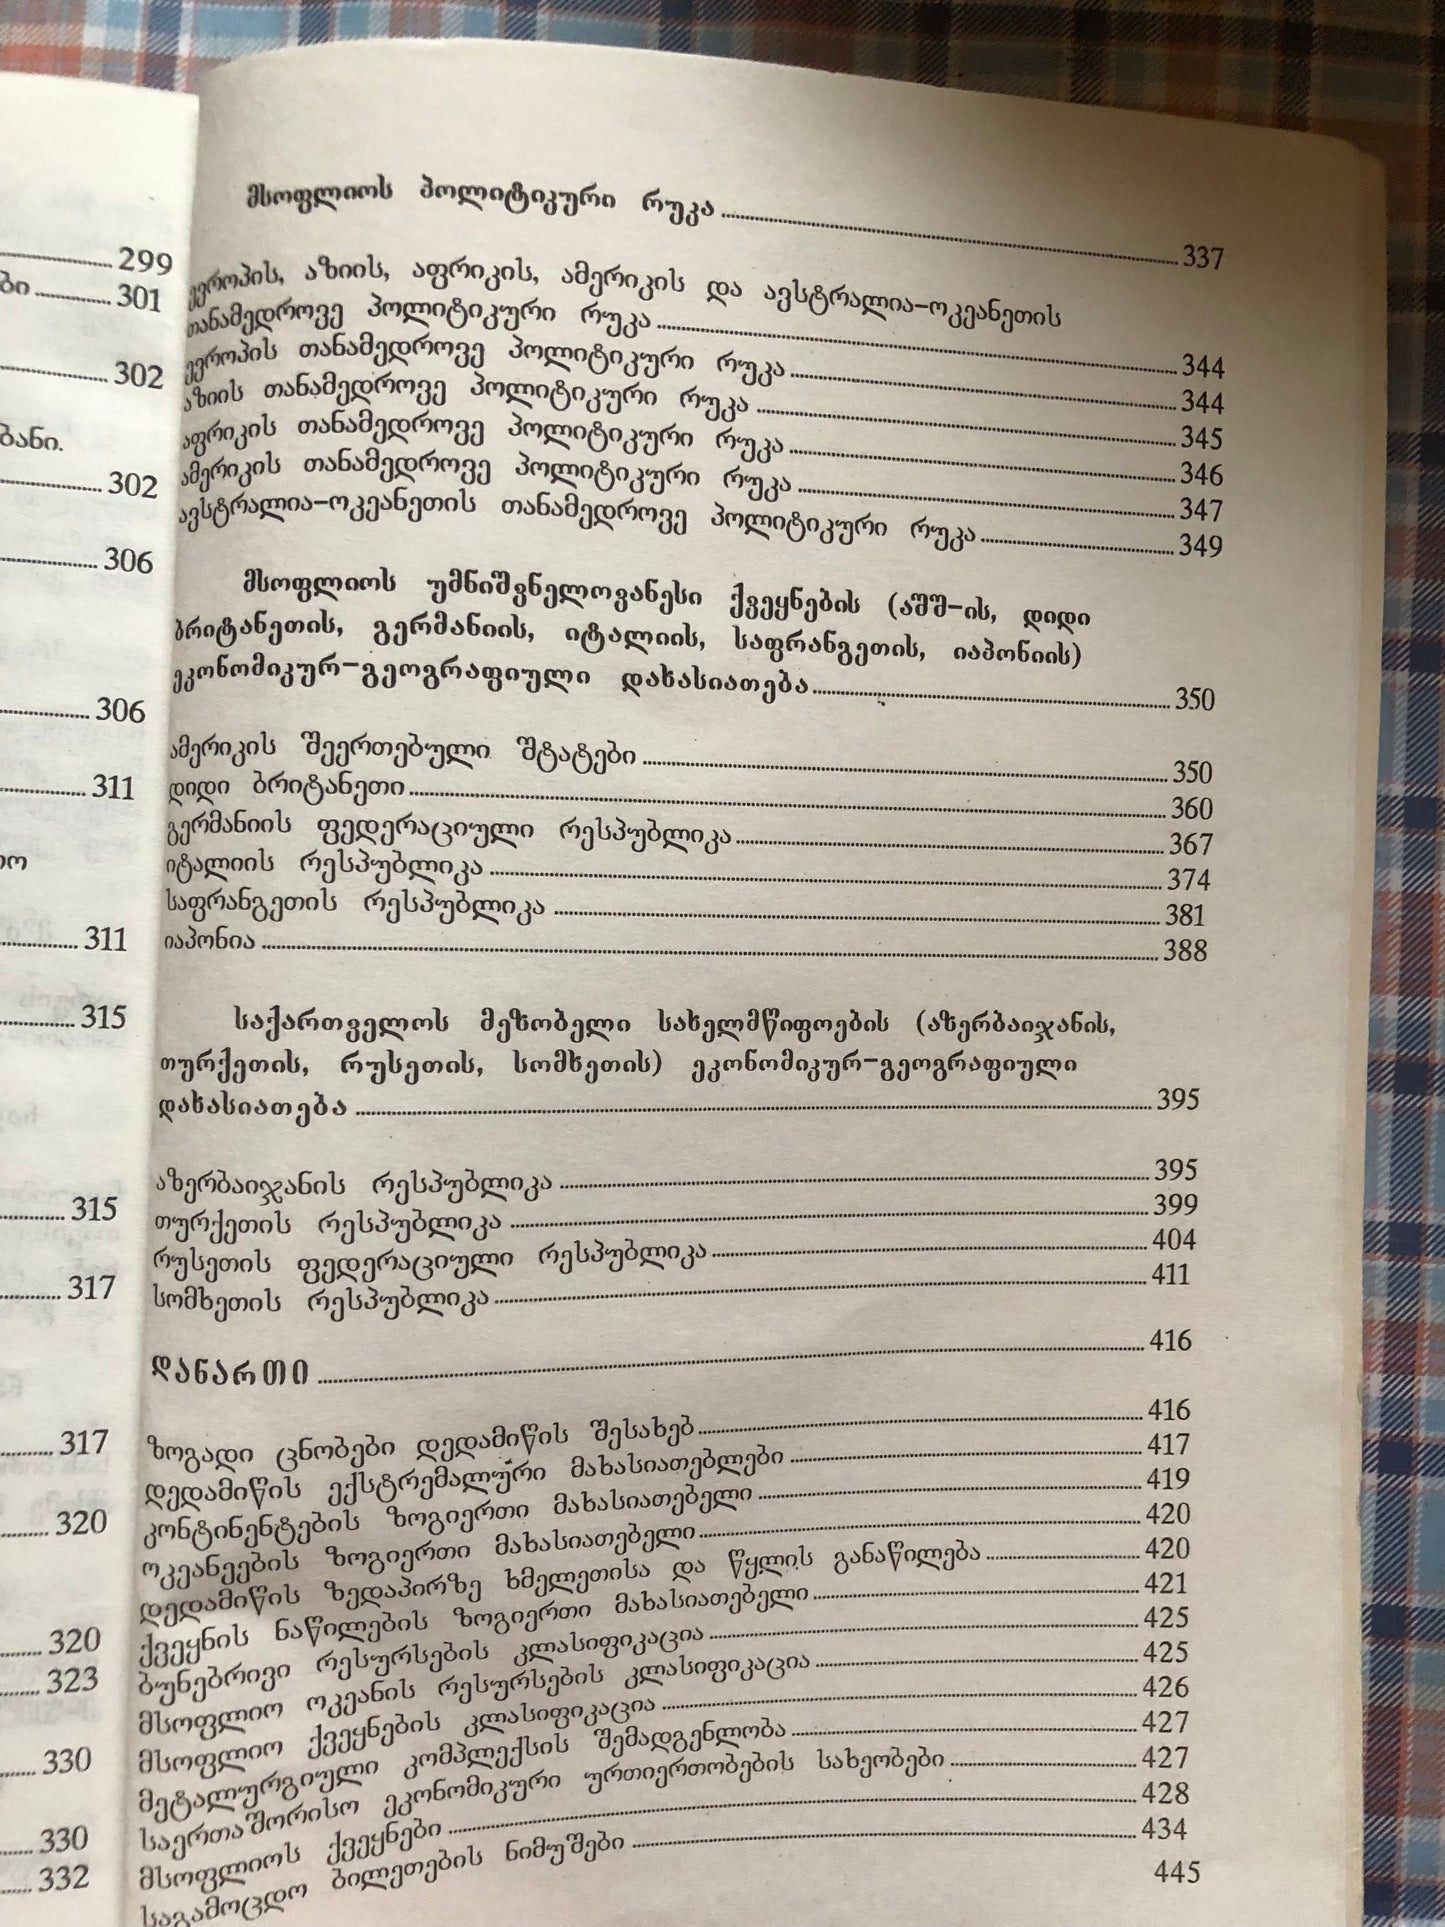 299
ბი 301
302
ბანი.
302
306
306
311
311
315
315
317
317
320
320
323
330
330
332
მსოფლიოს პოლიტიკური რუკა 337
ევროპის, აზიის, აფრიკის, ამერიკის და ავსტრალია-ოკეანეთის
თანამედროვე პოლიტიკური რუკა 344
ევროპის თანამედროვე პოლიტიკური რუკა 344
აზიის თანამედროვე პოლიტიკური რუკა 345
აფრიკის თანამედროვე პოლიტიკური რუკა 346
ამერიკის თანამედროვე პოლიტიკური რუკა 347
ავსტრალია-ოკეანეთის თანამედროვე პოლიტიკური რუკა 349
მსოფლიოს უმნიშვნელოვანესი ქვეყნების (აშშ-ის, დიდი
ბრიტანეთის, გერმანიის, იტალიის, საფრანგეთის, იაპონიის)
ეკონომიკურ-გეოგრაფიული დახასიათება 350
ამერიკის შეერთებული შტატები 350
დიდი ბრიტანეთი 360
გერმანიის ფედერაციული რესპუბლიკა 367
იტალიის რესპუბლიკა 374
საფრანგეთის რესპუბლიკა 381
იაპონია 388
საქართველოს მეზობელი სახელმწიფოების (აზერბაიჯანის,
თურქეთის, რუსეთის, სომხეთის) ეკონომიკურ-გეოგრაფიული
დახასიათება 395
აზერბაიჯანის რესპუბლიკა 395
თურქეთის რესპუბლიკა 399
რუსეთის ფედერაციული რესპუბლიკა 404
სომხეთის რესპუბლიკა 411
დანართი 416
ზოგადი ცნობები დედამიწის შესახებ 416
დედამიწის ექსტრემალური მახასიათებლები 417
კონტინენტების ზოგიერთი მახასიათებელი 419
ოკეანეების ზოგიერთი მახასიათებელი 420
დედამიწის ზედაპირზე ხმელეთისა და წყლის განაწილება 420
ქვეყნის ნაწილების ზოგიერთი მახასიათებელი 421
ბუნებრივი რესურსების კლასიფიკაცია 425
მსოფლიო ოკეანის რესურსების კლასიფიკაცია 425
მსოფლიო ქვეყნების კლასიფიკაცია 426
მეტალურგიული კომპლექსის შემადგენლობა 427
საერთაშორისო ეკონომიკური ურთიერთობების სახეობები 427
მსოფლიოს ქვეყნები 428
საგამოცდო ბილეთების ნიმუშები 434
445